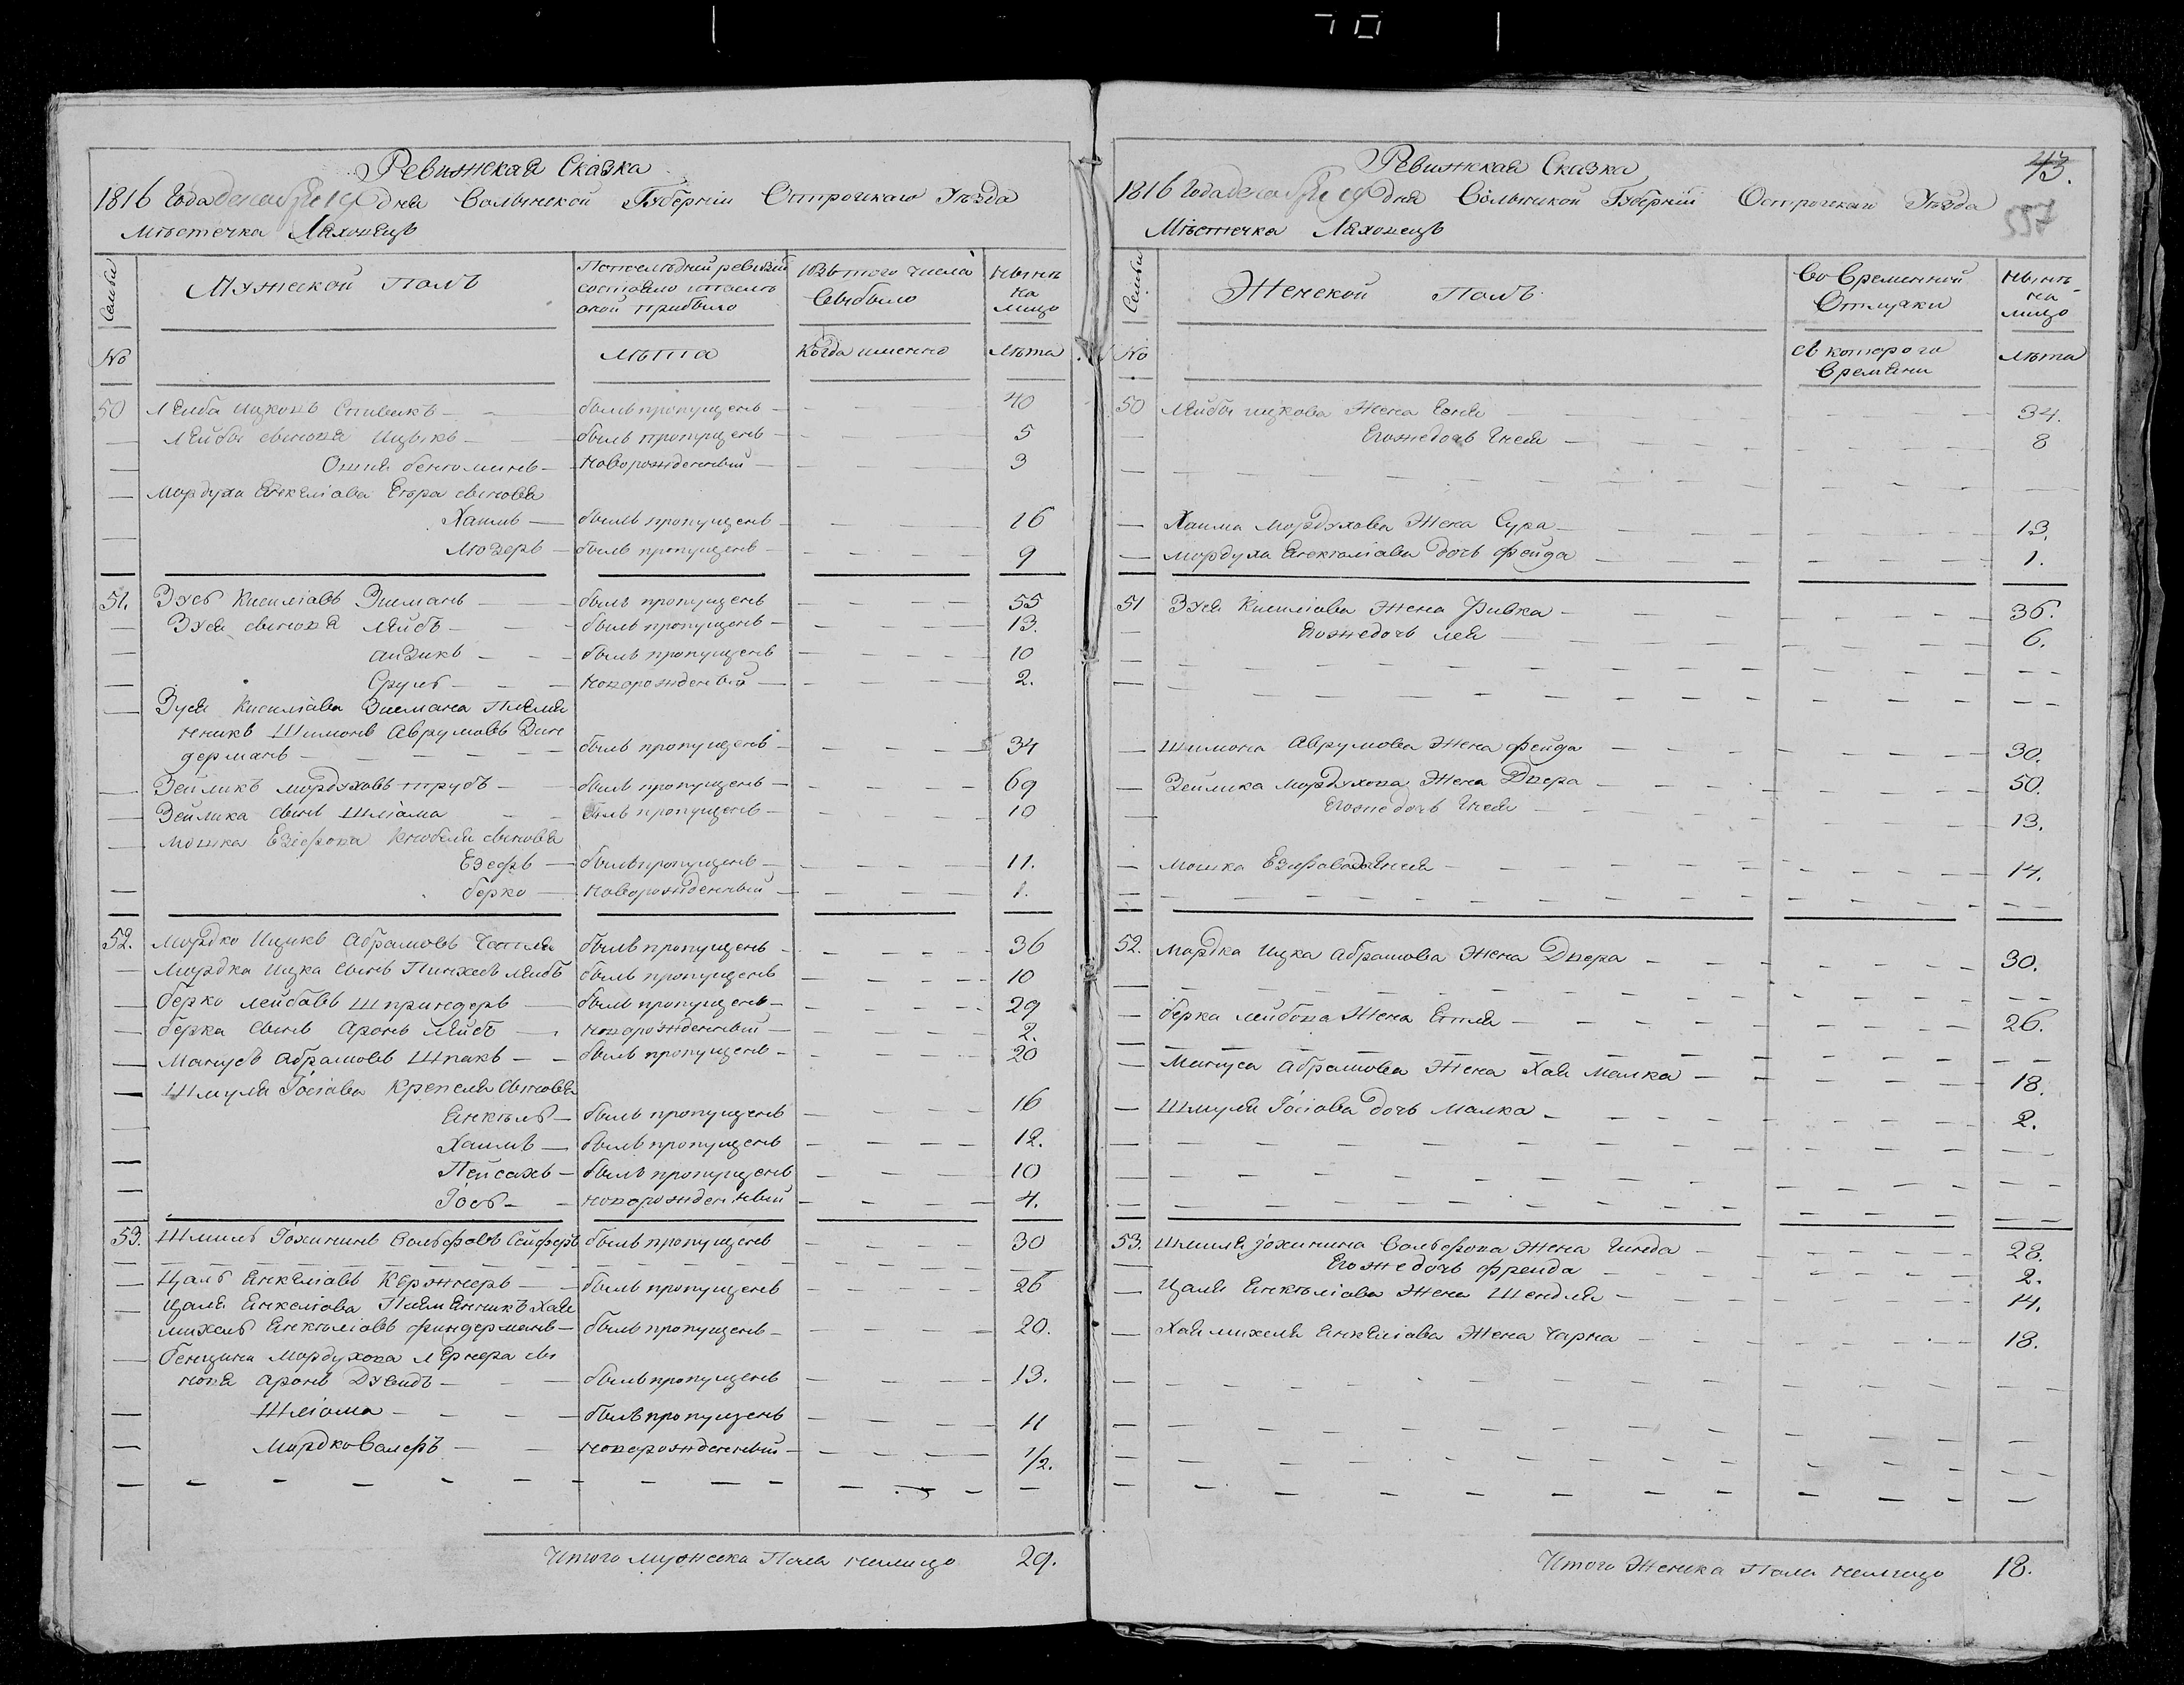 Ревижская Сказка
1816 Года декабря 19 дня Волынской Губернiи Острогскаго Уѣзда
Мѣстечка Ляховецъ
Семьи
Мужеской Полъ
По последней ревизiи
состояло и после
оной прибыло
Изъ того числа
Выбыло
Нынѣ
на
лицо
№
лѣта
Когда именно
лѣта
50 Лейба Ицковъ Спивакъ былъ пропущенъ 40
Лейбы сыновя Ицыкъ былъ пропущенъ 5
Ошия бенюминъ новорожденный 3
Мордуха Енкелiова сыновя
Хаимъ былъ пропущенъ 16
Люзеръ былъ пропущенъ 9
51. Зусь Кисилiовъ Зисманъ былъ пропущенъ 55
Зуся сыновя Лейбъ былъ пропущенъ 13.
аизикъ былъ пропущенъ 10
Сруль новорожденный 2.
Зуся Кисилiова Зисмана Племя
нникъ Шимонъ Аврумовъ Зин
дерманъ былъ пропущенъ 34
Зейликъ мордуховъ трубъ былъ пропущенъ 69
Зейлика сынъ Шлiома былъ пропущенъ 10
мошка Езiефова Кнобеля сыновя
Езефъ былъ пропущенъ 11.
берко новорожденный 1.
52. Мордко Ицикъ абрамовъ Чапля былъ пропущенъ 36
Мордка Ицка сынъ Пинхесъ лейбъ былъ пропущенъ 10
берко лейбовъ Шпринцеръ былъ пропущенъ 29
берка сынъ Аронъ Лейбъ новорожденный 2.
Манусъ абрамовъ Шпакъ былъ пропущенъ 20
Шмуля Iосiова Крепеля сыновя
Енкель былъ пропущенъ 16
Хаимъ былъ пропущенъ 12.
Пейсахъ былъ пропущенъ 10
Iось новорожденный 4.
53. Шмиль Iохининъ Вольфовъ Сейферъ былъ пропущенъ 30
Цаль Енкелiовъ Кержнеръ былъ пропущенъ 26
Цаля Енкелiова Племенникъ Хаи
михель Енкелiовъ финдерманъ былъ пропущенъ 20.
бенциана Мордухова лернера сы
новя аронъ Дувидъ былъ пропущенъ 13.
Шлiома былъ пропущенъ 11
Мордко Волефъ новорожденный 1/2.
Итого мужеска Пола налицо 29.
43.
557
Ревижская Сказка
1816 Года декабря 19 дня Волынской Губернiи Острогскаго Уѣзда
Мѣстечка Ляховецъ
Семьи
Женской Полъ
Во Временной
Отлучки
Нынѣ
на
лицо
№
съ которого
Времени
лѣта
50 Лейбы ицкова Жена Хеня 34.
Егожедочь Гнеся 8
Хаима Мордухова Жена Сура 13.
Мордуха Енкелiова дочь фейга 1.
51 Зуся Кисилiова Жена Ривка 36.
Егожедочь лея 6.
Шимона Аврумова Жена фейга 30.
Зейлика мордухова Жена Двера 50.
Егожедочь Гнеся 13.
Мошка Езифова 14.
52. Мордка Ицка абрамова Жена Двера 30.
берка лейбова Жена Етля 26.
Мануса абрамова Жена Хая Малка 18.
Шмуля Iосiова дочь Малка 2.
53. Шмиля Iохинина Вольфова Жена Гинда 28.
Егожедочь фрейда 2.
Цаля Енкелiова Жена Шендля 14.
Хаимихеля Енкелiова Жена Чарна 18.
Итого Женска Пола налицо 18.